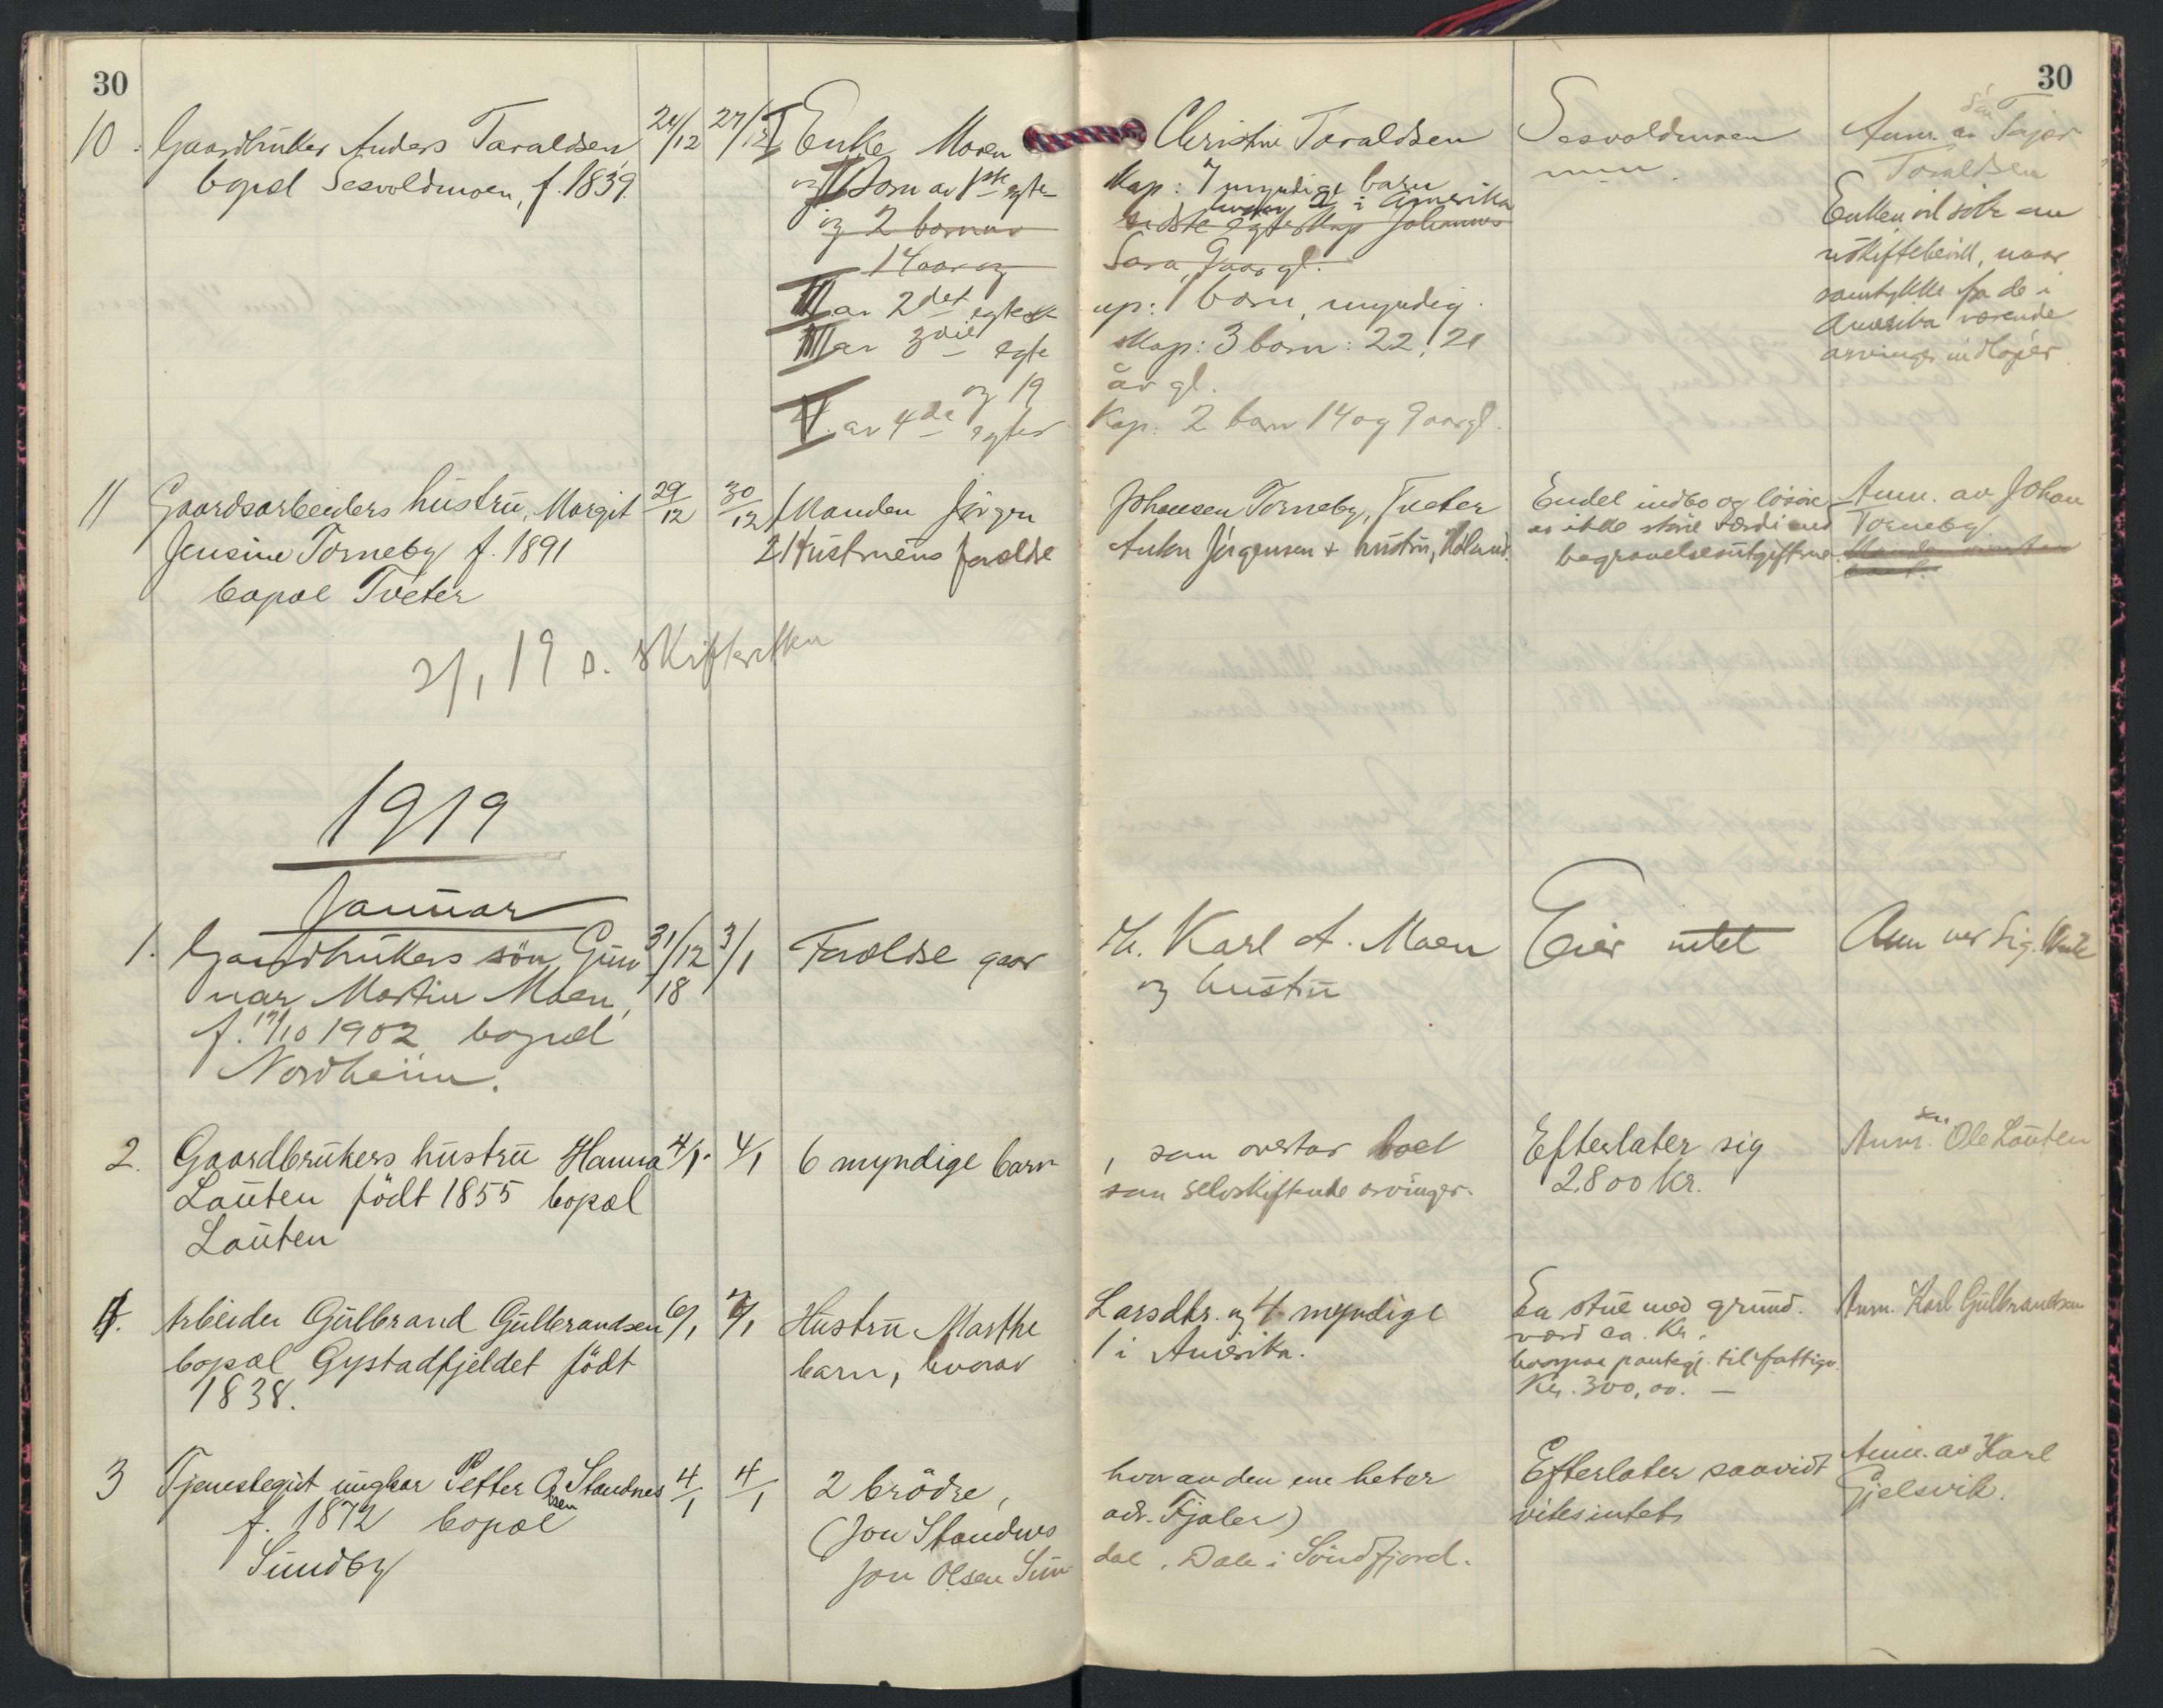 30
30
10. Gaardbruker Anders Taraldsen 24/12 27/12 I Enke Maren Christine Taraldsen Sesvoldmoen Anm. av Sön
bopæl Sesvoldmoen, f. 1839. og II Barn av 1ste egte- skap: 7 myndige barn Taraldsen
hvorav 2 i Amerika Enken vil söke om
og 2 barn av sidste egteskap Johannes uskiftebevill., naar
14 aar og Sara, 9 aar gl. samtykke fra de i
III av 2det egtesk up: 1 barn, myndig. Amerika værende
III av 3die egte skap: 3 barn: 22, 21 arvinger indlöper
og 19 år gl.
V. av 4de egtes kap. 2 barn 14 og 9 aar gl.
11 Gaardsarbeiders hustru, Margit 29/12 30/12 1 Manden Jörgen Johansen Torneby, Tveter Endel indbo og lösöre Anm. av Johan
Jensine Torneby f. 1891 2 Hustruens foreldre Anton Jörgensen + hustru, Höland. av ikke större værdi end Torneby
bopæl Tveter begravelsesutgiftene.
2/1 19 s. Skifteretten
1919
Januar
1. Gaardbrukers sön Gun 31/12 3/1 Foreldre gaar br. Karl A. Moen Eier intet Anm ved Sig.
nar Martin Moen, 18 og hustru
f. 17/10 1902 bopæl
Nordheim.
2. Gaardbrukers hustru Hanna 4/1. 4/1 6 myndige barn , som overtar boet Efterlater sig Anm. sön Ole Lauten
Lauten född 1855 bopæl som selvskiftende arvinger. 2.800 Kr.
Lauten
4. Arbeider Gulbrand Gulbrandsen 6/1 7/1 Hustru Marthe Larsdtr. og 4 myndige En stue med grund. Anm. Karl Gulbrandsen
bopæl Gystadfjeldet födt barn, hvorav 1 i Amerika. værd ca. Kr.
1838. hvorpaa pantegj. til fattigv.
Kr. 300,00. —
3 Tjenestegut ungkar Petter Olsen Standnes 4/1 4/1 2 brödre, hvorav den ene heter Efterlater saavidt Anm. av Karl
f. 1872 bopæl (Jon Standnes adr. Fjaler) vites intet Gjelsvik.
Sundby Jon Olsen Sun dal, Dale i Söndfjord.